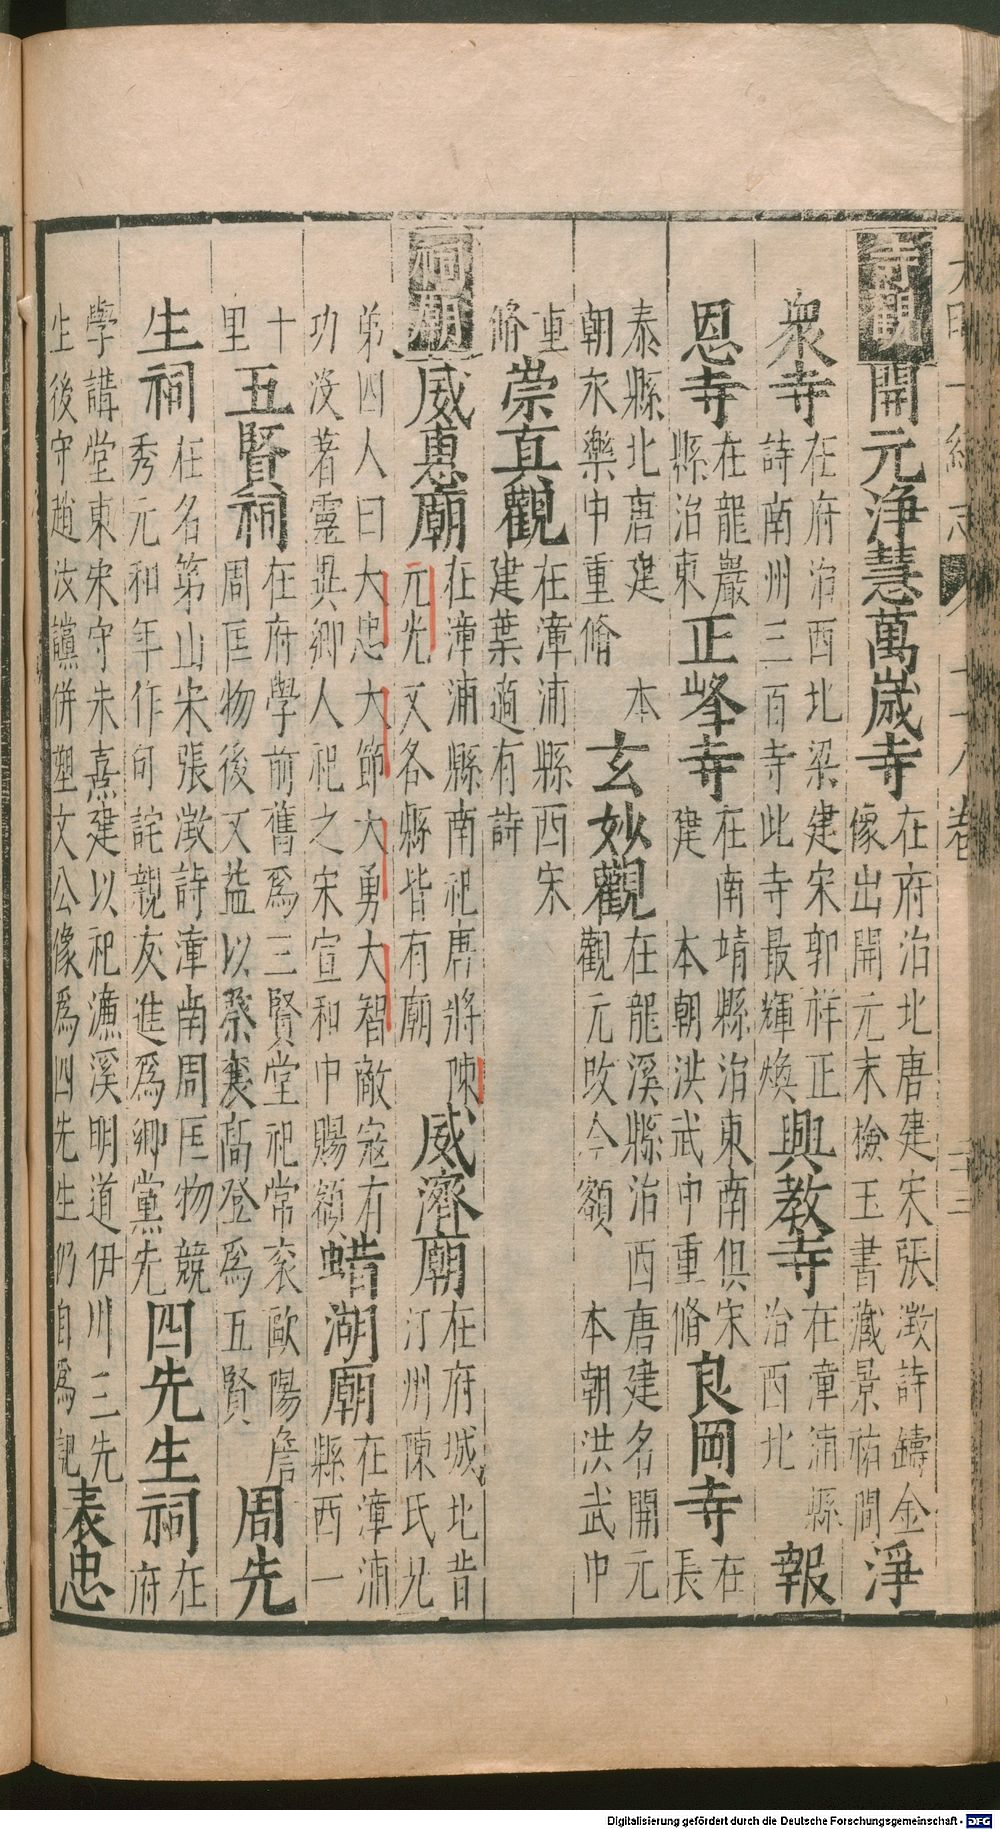 寺觀 開元淨慧萬歲寺 在府治北唐建宋張激詩鑄金像出開元末檢玉書藏景祐間 淨
衆寺 在府治西北梁建宋郭祥正詩南州三百寺此寺最輝煥 興教寺 在漳浦縣治西北 報
恩寺 在龍巖縣治東 正峯寺 在南靖縣治東南俱宋建 本朝洪武中重脩 良岡寺 在長
泰縣北唐建 本朝永樂中重脩 玄妙觀 在龍溪縣治西唐建名開元觀元改今額 本朝洪武中
重脩 崇真觀 在漳浦縣西宋建葉適有詩
祠廟 威惠廟 在漳浦縣南祀唐將陳元光又各縣皆有廟 威濟廟 在府城北昔汀州陳氏兄
弟四人曰大忠大節大勇大智敵寇有功沒著靈異鄉人祀之宋宣和中賜額 蜡湖廟 在漳浦縣西一
十里 五賢祠 在府學前舊爲三賢堂祀常衮歐陽詹周匡物後又益以蔡襄高登爲五賢 周先
生祠 在名第山宋張激詩漳南周匡物競秀元和年作何詫親友進爲鄉黨先 四先生祠 在府
學講堂東宋守朱熹建以祀濂溪明道伊川三先生後守趙汝讜併塑文公像爲四先生仍自爲記 表忠